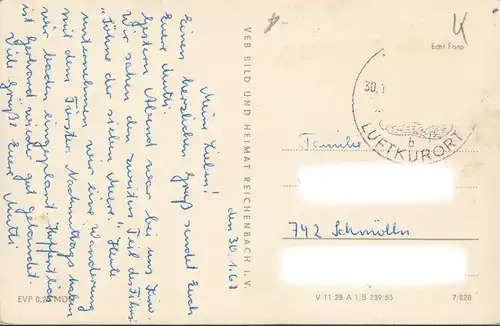 den 30.1.67
Meine Lieben!
Einen herzlichen Gruß sendet Euch
Eure Mutti.
Gestern Abend war bei uns Kino.
Wir sahen den zweiten Teil des Films
"Söhne der sieben Meere". Heute
unternehmen wir eine Wanderung
mit dem Förster. Nachmittags haben
wir baden eingeplant. Hoffentlich
ist Gerhard wieder gut gelandet.
Viele Grüße Eure Mutti
EVP 0,20 MDN
VEB BILD UND HEIMAT REICHENBACH i. V.
Echt Foto
30.1
b
LUFTKURORT
Familie
742 Schmölln
V 11 28 A 1 B 239/65
7/828